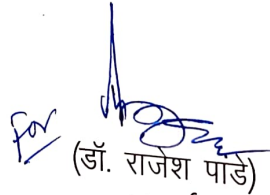 For
(डॉ. राजेश पांडे)